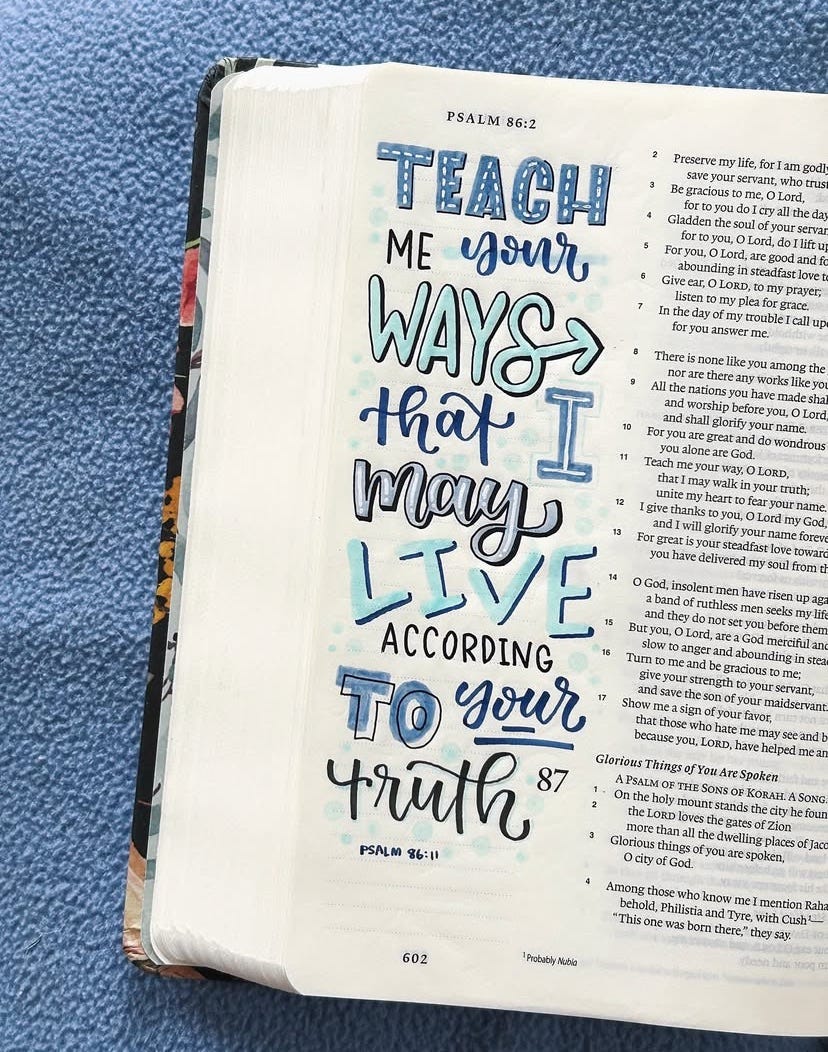 PSALM 86:2
TEACH
ME your
WAYS
that I
may
LIVE
ACCORDING
TO your
truth
PSALM 86:11
2 Preserve my life, for I am godly
save your servant, who
3 Be gracious to me, O Lord,
for to you do I cry all the day
4 Gladden the soul of your
for to you, O Lord, do I lift
5 For you, O Lord, are good and
abounding in steadfast love
6 Give ear, O LORD, to my prayer;
listen to my plea for grace.
7 In the day of my trouble I call
for you answer me.
8 There is none like you among the
nor are there any works like
9 All the nations you have made
and worship before you, O Lord,
and shall glorify your name.
10 For you are great and do wondrous
you alone are God.
11 Teach me your way, O LORD,
that I may walk in your truth;
unite my heart to fear your name.
12 I give thanks to you, O Lord my God,
and I will glorify your name
13 For great is your steadfast love
you have delivered my soul from
14 O God, insolent men have risen up
a band of ruthless men seeks my
and they do not set you before them
15 But you, O Lord, are a God merciful
slow to anger and abounding in
16 Turn to me and be gracious to me;
give your strength to your servant,
and save the son of your maidservant.
17 Show me a sign of your favor,
that those who hate me may see and
because you, LORD, have helped me
Glorious Things of You Are Spoken
87 A PSALM OF THE SONS OF KORAH. A SONG.
1 On the holy mount stands the city he
2 the LORD loves the gates of Zion
more than all the dwelling places of
3 Glorious things of you are spoken,
O city of God.
4 Among those who know me I mention
behold, Philistia and Tyre, with Cush1—
“This one was born there,” they say.
602
1 Probably Nubia